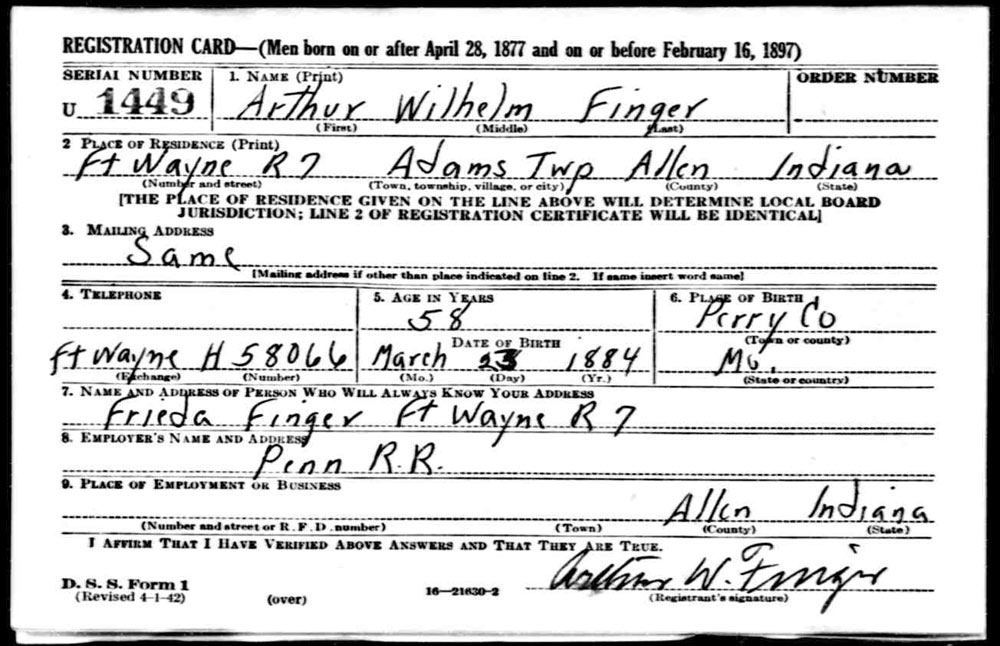 REGISTRATION CARD—(Men born on or after April 28, 1877 and on or before February 16, 1897)
SERIAL NUMBER 1. NAME (Print) ORDER NUMBER
U 1449 Arthur Wilhelm Finger
(First) (Middle) (Last)
2 PLACE OF RESIDENCE (Print)
Ft Wayne R 7 Adams Twp Allen Indiana
(Number and street) (Town, township, village, or city) (County) (State)
[THE PLACE OF RESIDENCE GIVEN ON THE LINE ABOVE WILL DETERMINE LOCAL BOARD
JURISDICTION; LINE 2 OF REGISTRATION CERTIFICATE WILL BE IDENTICAL]
3. MAILING ADDRESS
Same
[Mailing address if other than place indicated on line 2. If same insert word same]
4. TELEPHONE 5. AGE IN YEARS 6. PLACE OF BIRTH
58 Perry Co
DATE OF BIRTH (Town or county)
Ft Wayne H 58066 March 1884 Mo.
(Exchange) (Number) (Mo.) (Day) (Yr.) (State or country)
7. NAME AND ADDRESS OF PERSON WHO WILL ALWAYS KNOW YOUR ADDRESS
Frieda Finger Ft Wayne R 7
8. EMPLOYER'S NAME AND ADDRESS
Penn R.R.
9. PLACE OF EMPLOYMENT OR BUSINESS
Allen Indiana
(Number and street or R. F. D. number) (Town) (County) (State)
I AFFIRM THAT I HAVE VERIFIED ABOVE ANSWERS AND THAT THEY ARE TRUE.
Arthur W. Finger
D. S. S. Form 1
(Revised 4-1-42) (over) 16—21630-2 (Registrant's signature)